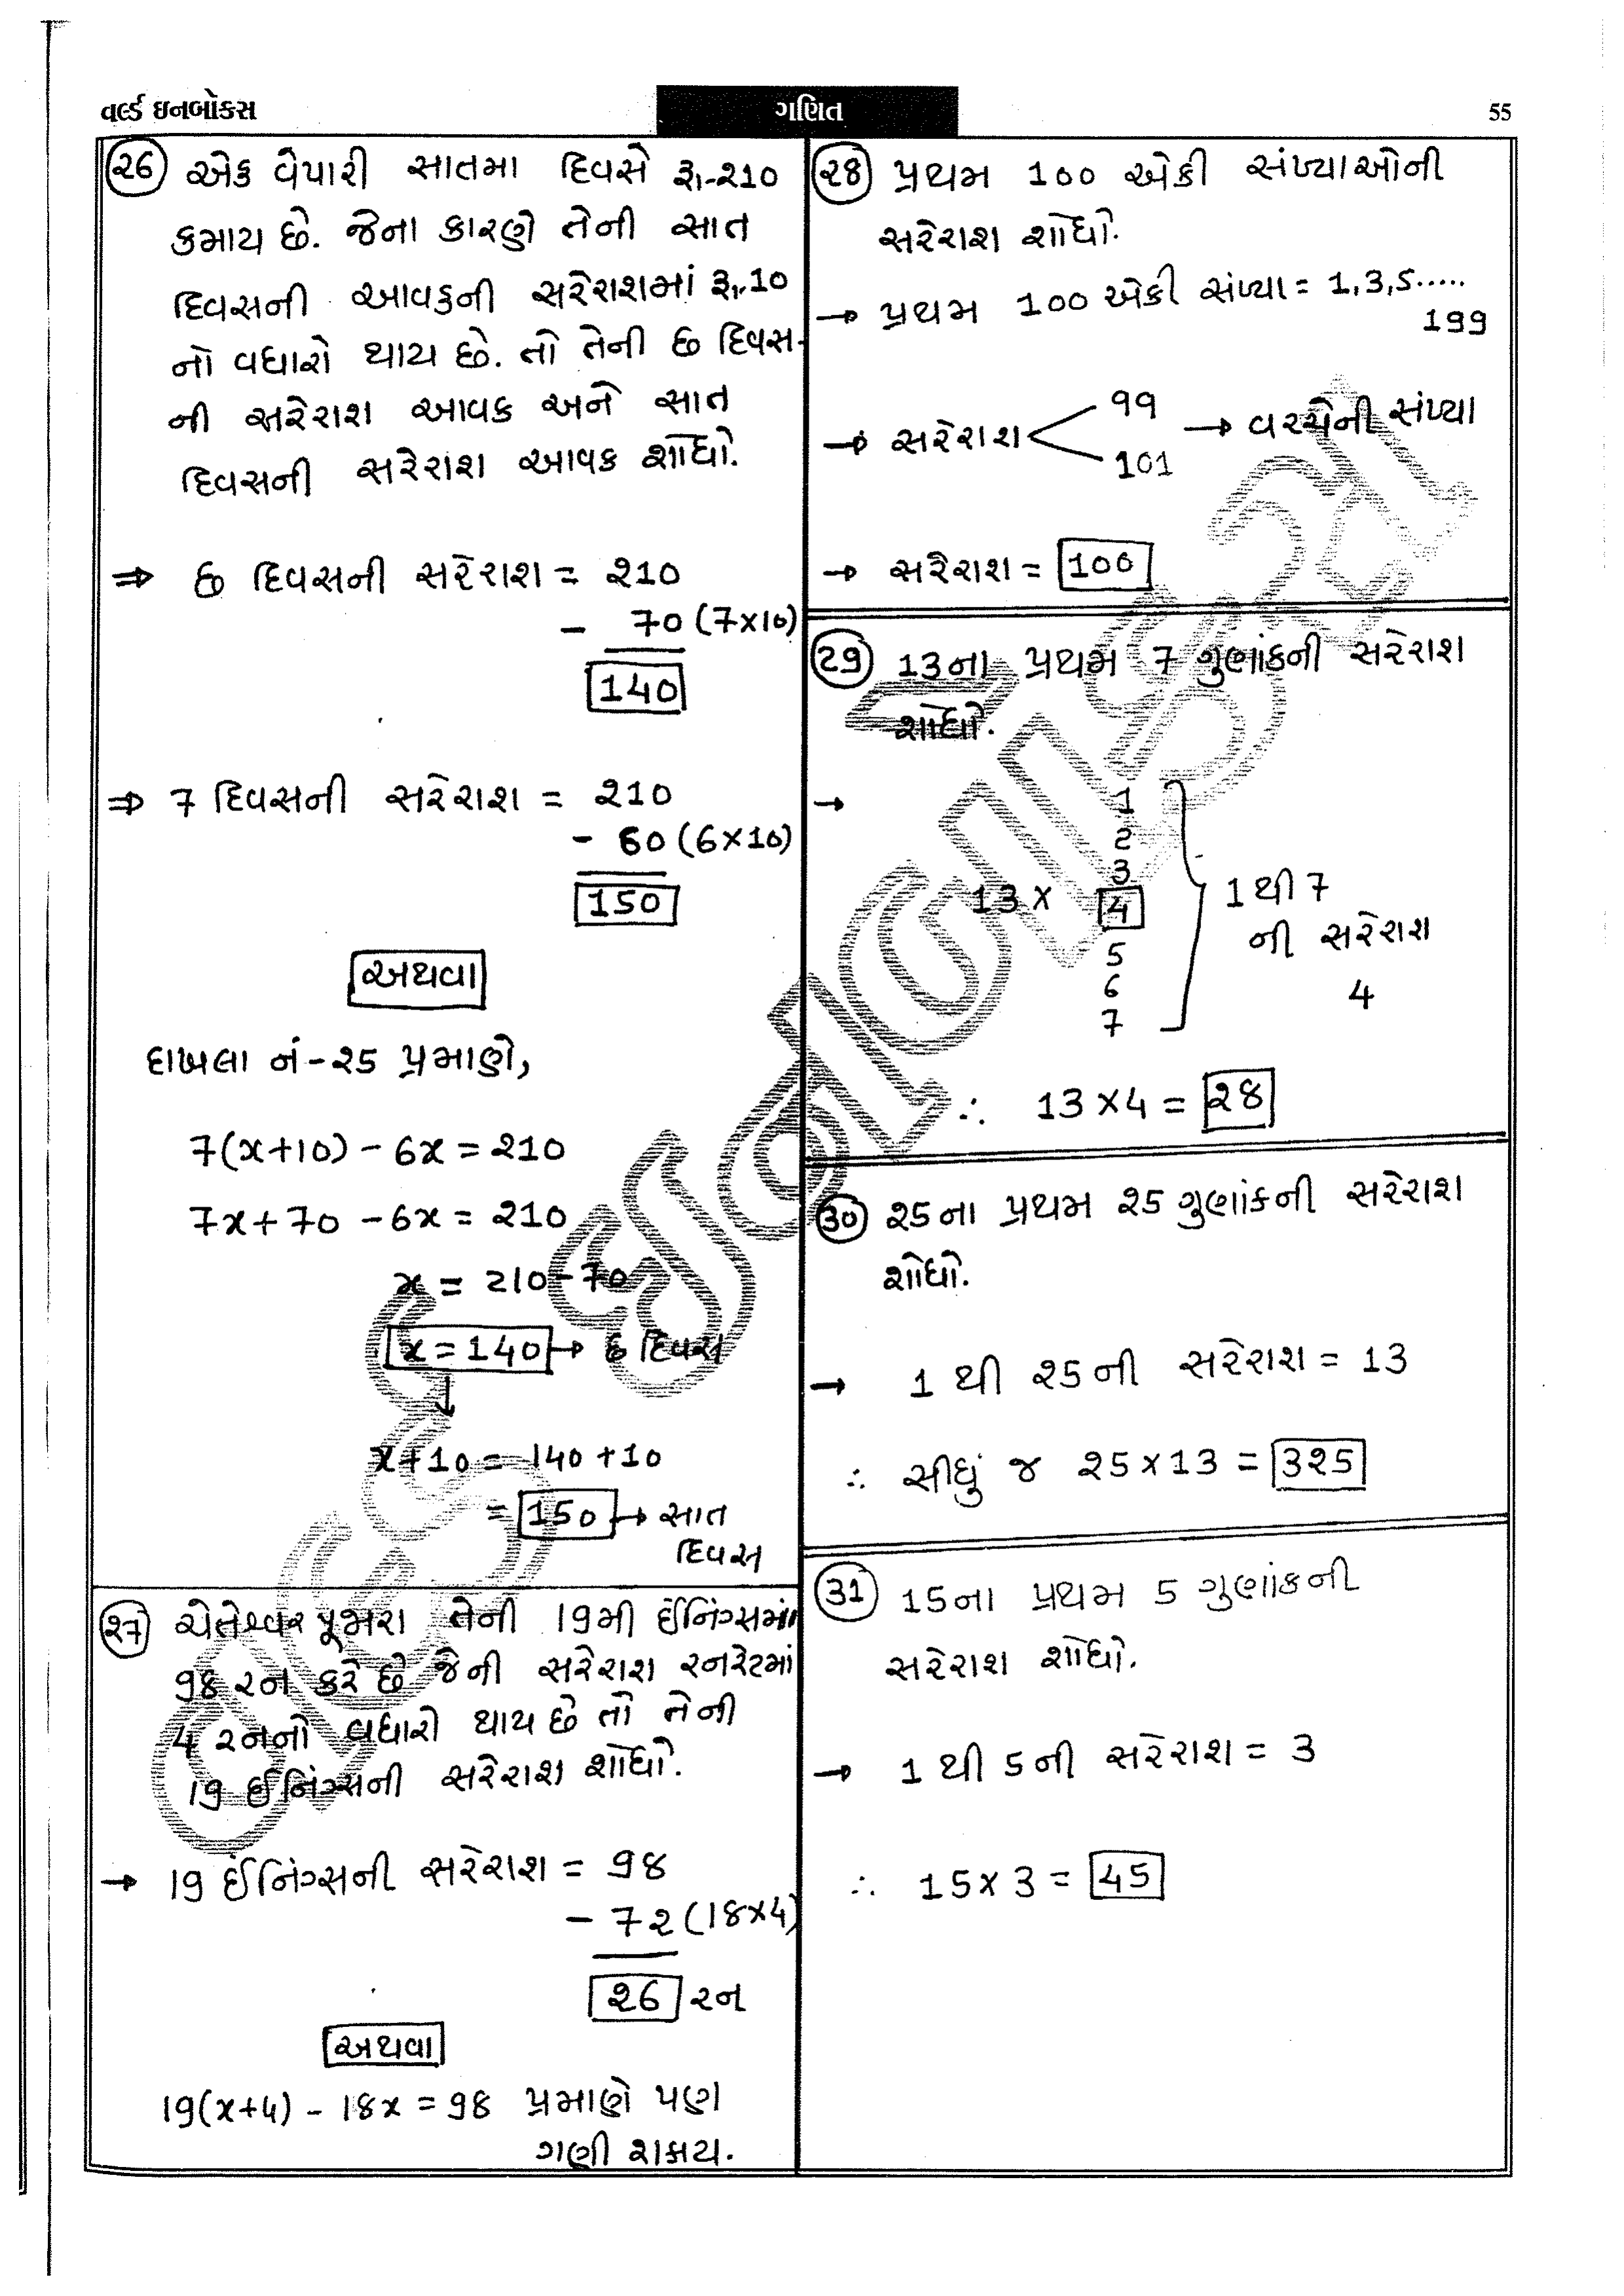 વર્લ્ડ ઇનબોક્સ
ગણિત
55
૨6 એક વેપારી સાતમા દિવસે રૂા.-૨10
કમાય છે. જેના કારણે તેની સાત
દિવસની આવકની સરેરાશમાં રૂા.10
નો વધારો થાય છે. તો તેની છ દિવસ-
ની સરેરાશ આવક અને સાત
દિવસની સરેરાશ આવક શોધો.
⇒ 6 દિવસની સરેરાશ = ૨10
- 70 (7×10)
140
⇒ 7 દિવસની સરેરાશ = ૨10
- 60 (6×10)
150
અથવા
દાખલા નં-૨5 પ્રમાણે,
7(x+10) - 6x = ૨10
7x+70 - 6x = ૨10
x = 210-70
x = 140 → 6 દિવસ
↓
x+10 = 140+10
= 150 → સાત
દિવસ
૨7 ચેતેશ્વર પૂજારા તેની 19મી ઈનિંગ્સમાં
98 રન કરે છે જેની સરેરાશ રનરેટમાં
4 રનનો વધારો થાય છે તો તેની
19 ઈનિંગ્સની સરેરાશ શોધો.
→ 19 ઈનિંગ્સની સરેરાશ = 98
- 7૨ (18×4)
૨6 રન
અથવા
19(x+4) - 18x = 98 પ્રમાણે પણ
ગણી શકાય.
૨8 પ્રથમ 100 એકી સંખ્યાઓની
સરેરાશ શોધો.
→ પ્રથમ 100 એકી સંખ્યા = 1,3,5.....
199
99
→ સરેરાશ < → વચ્ચેની સંખ્યા
101
→ સરેરાશ = 100
૨9 13ના પ્રથમ 7 ગુણાંકની સરેરાશ
શોધો.
→ 1
2
3
13 × 4
5
6
7
1 થી 7
ની સરેરાશ
4
∴ 13×4 = ૨8
30 ૨5ના પ્રથમ ૨5 ગુણાંકની સરેરાશ
શોધો.
→ 1 થી ૨5 ની સરેરાશ = 13
∴ સીધું જ ૨5×13 = 3૨5
31 15ના પ્રથમ 5 ગુણાંકની
સરેરાશ શોધો.
→ 1 થી 5 ની સરેરાશ = 3
∴ 15×3 = 45